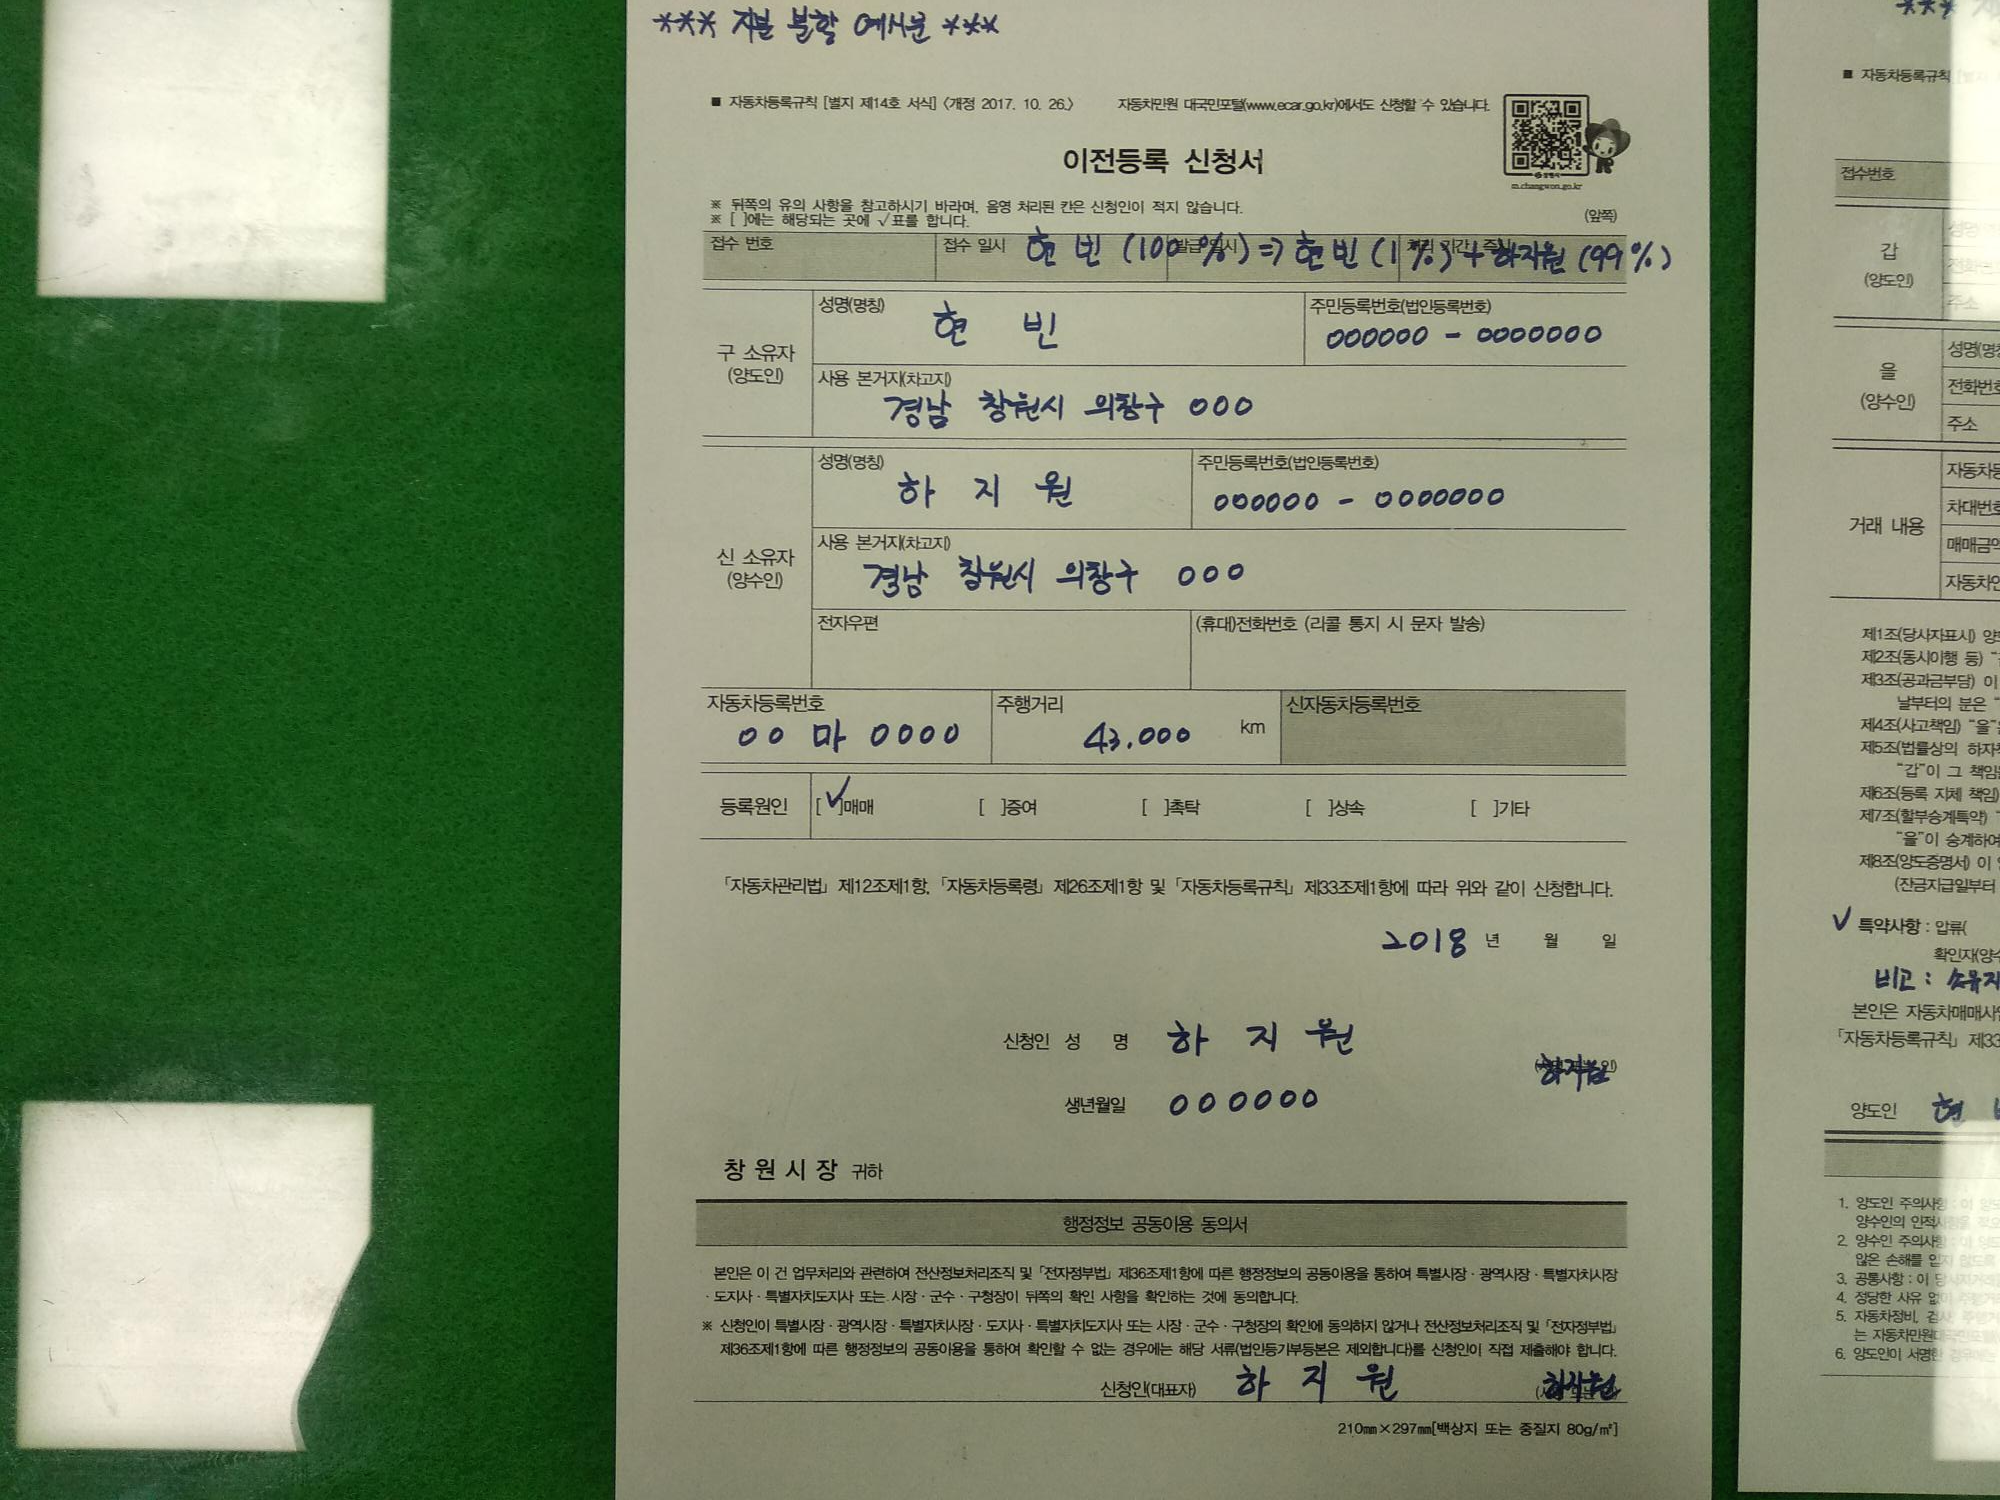 *** 지분 분할 예시문 ***
■ 자동차등록규칙 [별지 제14호 서식] <개정 2017. 10. 26.> 자동차민원 대국민포털(www.ecar.go.kr)에서도 신청할 수 있습니다.
이전등록 신청서
m.changwon.go.kr
※ 뒤쪽의 유의 사항을 참고하시기 바라며, 음영 처리된 칸은 신청인이 적지 않습니다.
※ [ ]에는 해당되는 곳에 √표를 합니다.
(앞쪽)
접수 번호 접수 일시 발급 일시 처리 기간
현빈 (100%) => 현빈 (1%) + 하지원 (99%)
구 소유자
(양도인)
성명(명칭) 현 빈
주민등록번호(법인등록번호) 000000 - 0000000
사용 본거지(차고지)
경남 창원시 의창구 000
신 소유자
(양수인)
성명(명칭) 하 지 원
주민등록번호(법인등록번호) 000000 - 0000000
사용 본거지(차고지)
경남 창원시 의창구 000
전자우편 (휴대)전화번호 (리콜 통지 시 문자 발송)
자동차등록번호 주행거리 신자동차등록번호
00 마 0000 43.000 km
등록원인 [✓]매매 [ ]증여 [ ]촉탁 [ ]상속 [ ]기타
「자동차관리법」 제12조제1항, 「자동차등록령」 제26조제1항 및 「자동차등록규칙」 제33조제1항에 따라 위와 같이 신청합니다.
2018 년 월 일
신청인 성 명 하 지 원
하지원
생년월일 000000
창 원 시 장 귀하
행정정보 공동이용 동의서
본인은 이 건 업무처리와 관련하여 전산정보처리조직 및 「전자정부법」 제36조제1항에 따른 행정정보의 공동이용을 통하여 특별시장·광역시장·특별자치시장
·도지사·특별자치도지사 또는 시장·군수·구청장이 뒤쪽의 확인 사항을 확인하는 것에 동의합니다.
※ 신청인이 특별시장·광역시장·특별자치시장·도지사·특별자치도지사 또는 시장·군수·구청장의 확인에 동의하지 않거나 전산정보처리조직 및 「전자정부법」
제36조제1항에 따른 행정정보의 공동이용을 통하여 확인할 수 없는 경우에는 해당 서류(법인등기부등본은 제외합니다)를 신청인이 직접 제출해야 합니다.
신청인(대표자) 하 지 원 하지원
210㎜×297㎜[백상지 또는 중질지 80g/㎡]
***
■ 자동차등록규칙
접수번호
갑
(양도인)
성명
주소
을
(양수인)
성명(명칭
전화번호
주소
거래 내용
자동차등
차대번호
매매금액
자동차인
제1조(당사자표시)
제2조(동시이행 등)
제3조(공과금부담) 이
날부터의 분은
제4조(사고책임) "을"
제5조(법률상의 하자
"갑"이 그 책임
제6조(등록 지체 책임)
제7조(할부승계특약)
"을"이 승계하여
제8조(양도증명서) 이
(잔금지급일부터
✓ 특약사항 : 압류(
확인자(양수
비고 : 소유자
본인은 자동차매매사업
「자동차등록규칙」 제33
양도인 현
1. 양도인 주의사항 : 이
양수인의 인적사항
2. 양수인 주의사항 : 이
않은 손해를 입지 않도록
3. 공통사항 : 이
4. 정당한 사유 없이
5. 자동차정비, 검사
는 자동차민원
6. 양도인이 서명한